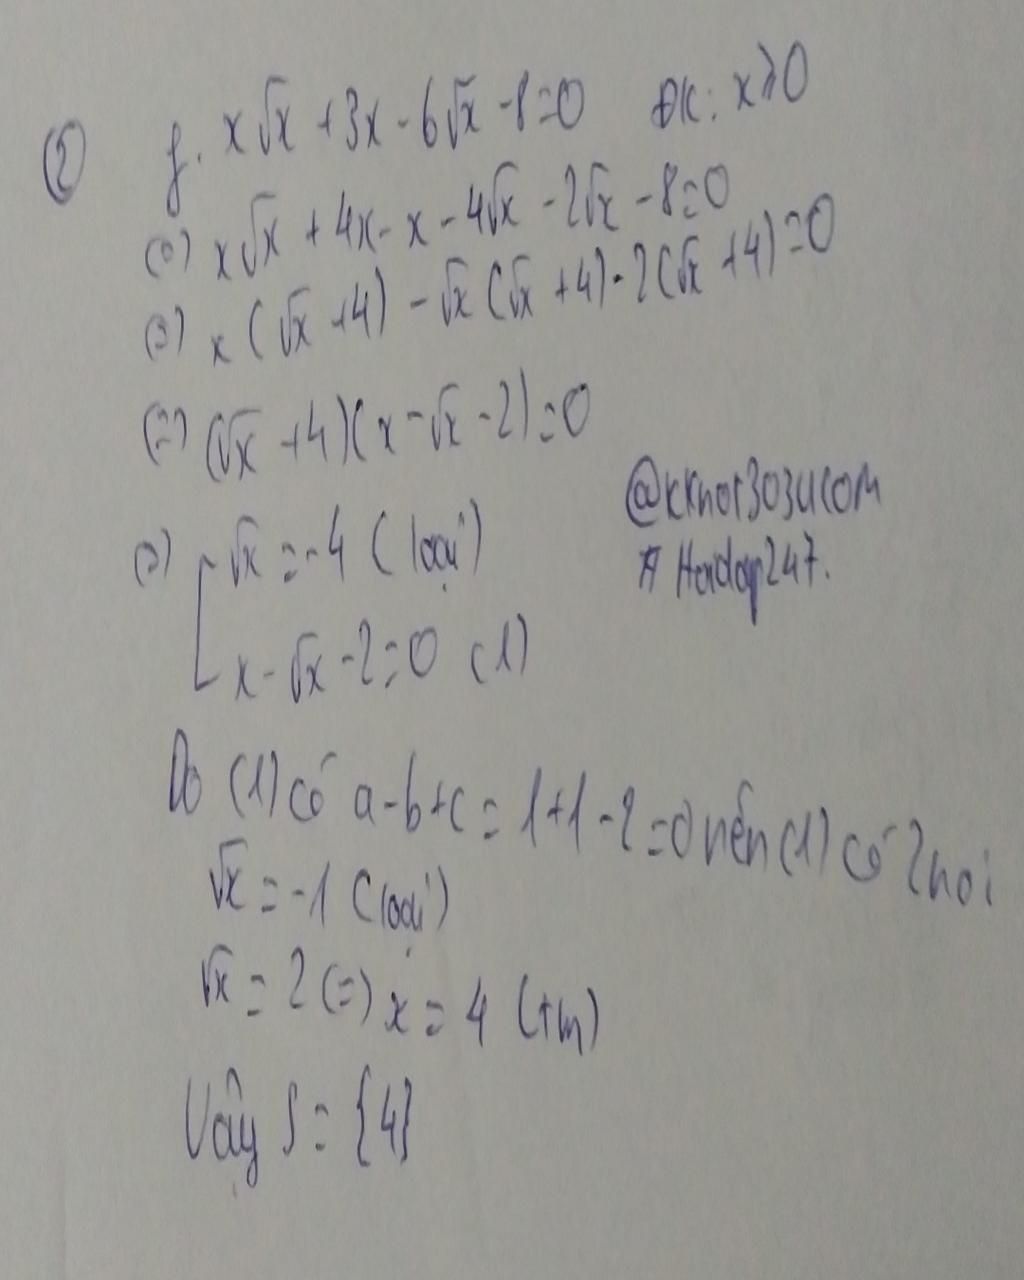 ② f. x√x + 3x - 6√x - 8 = 0 ĐK: x ≥ 0
(=) x√x + 4x - x - 4√x - 2√x - 8 = 0
(=) x(√x + 4) - √x(√x + 4) - 2(√x + 4) = 0
(=) (√x + 4)(x - √x - 2) = 0
(=) [ √x = -4 (loại)
x - √x - 2 = 0 (1)
@kknor303ucom
# Hoidap247.
Do (1) có a - b + c = 1 + 1 - 2 = 0 nên (1) có 2 no
√x = -1 (loại)
√x = 2 (=) x = 4 (tm)
Vậy S = {4}